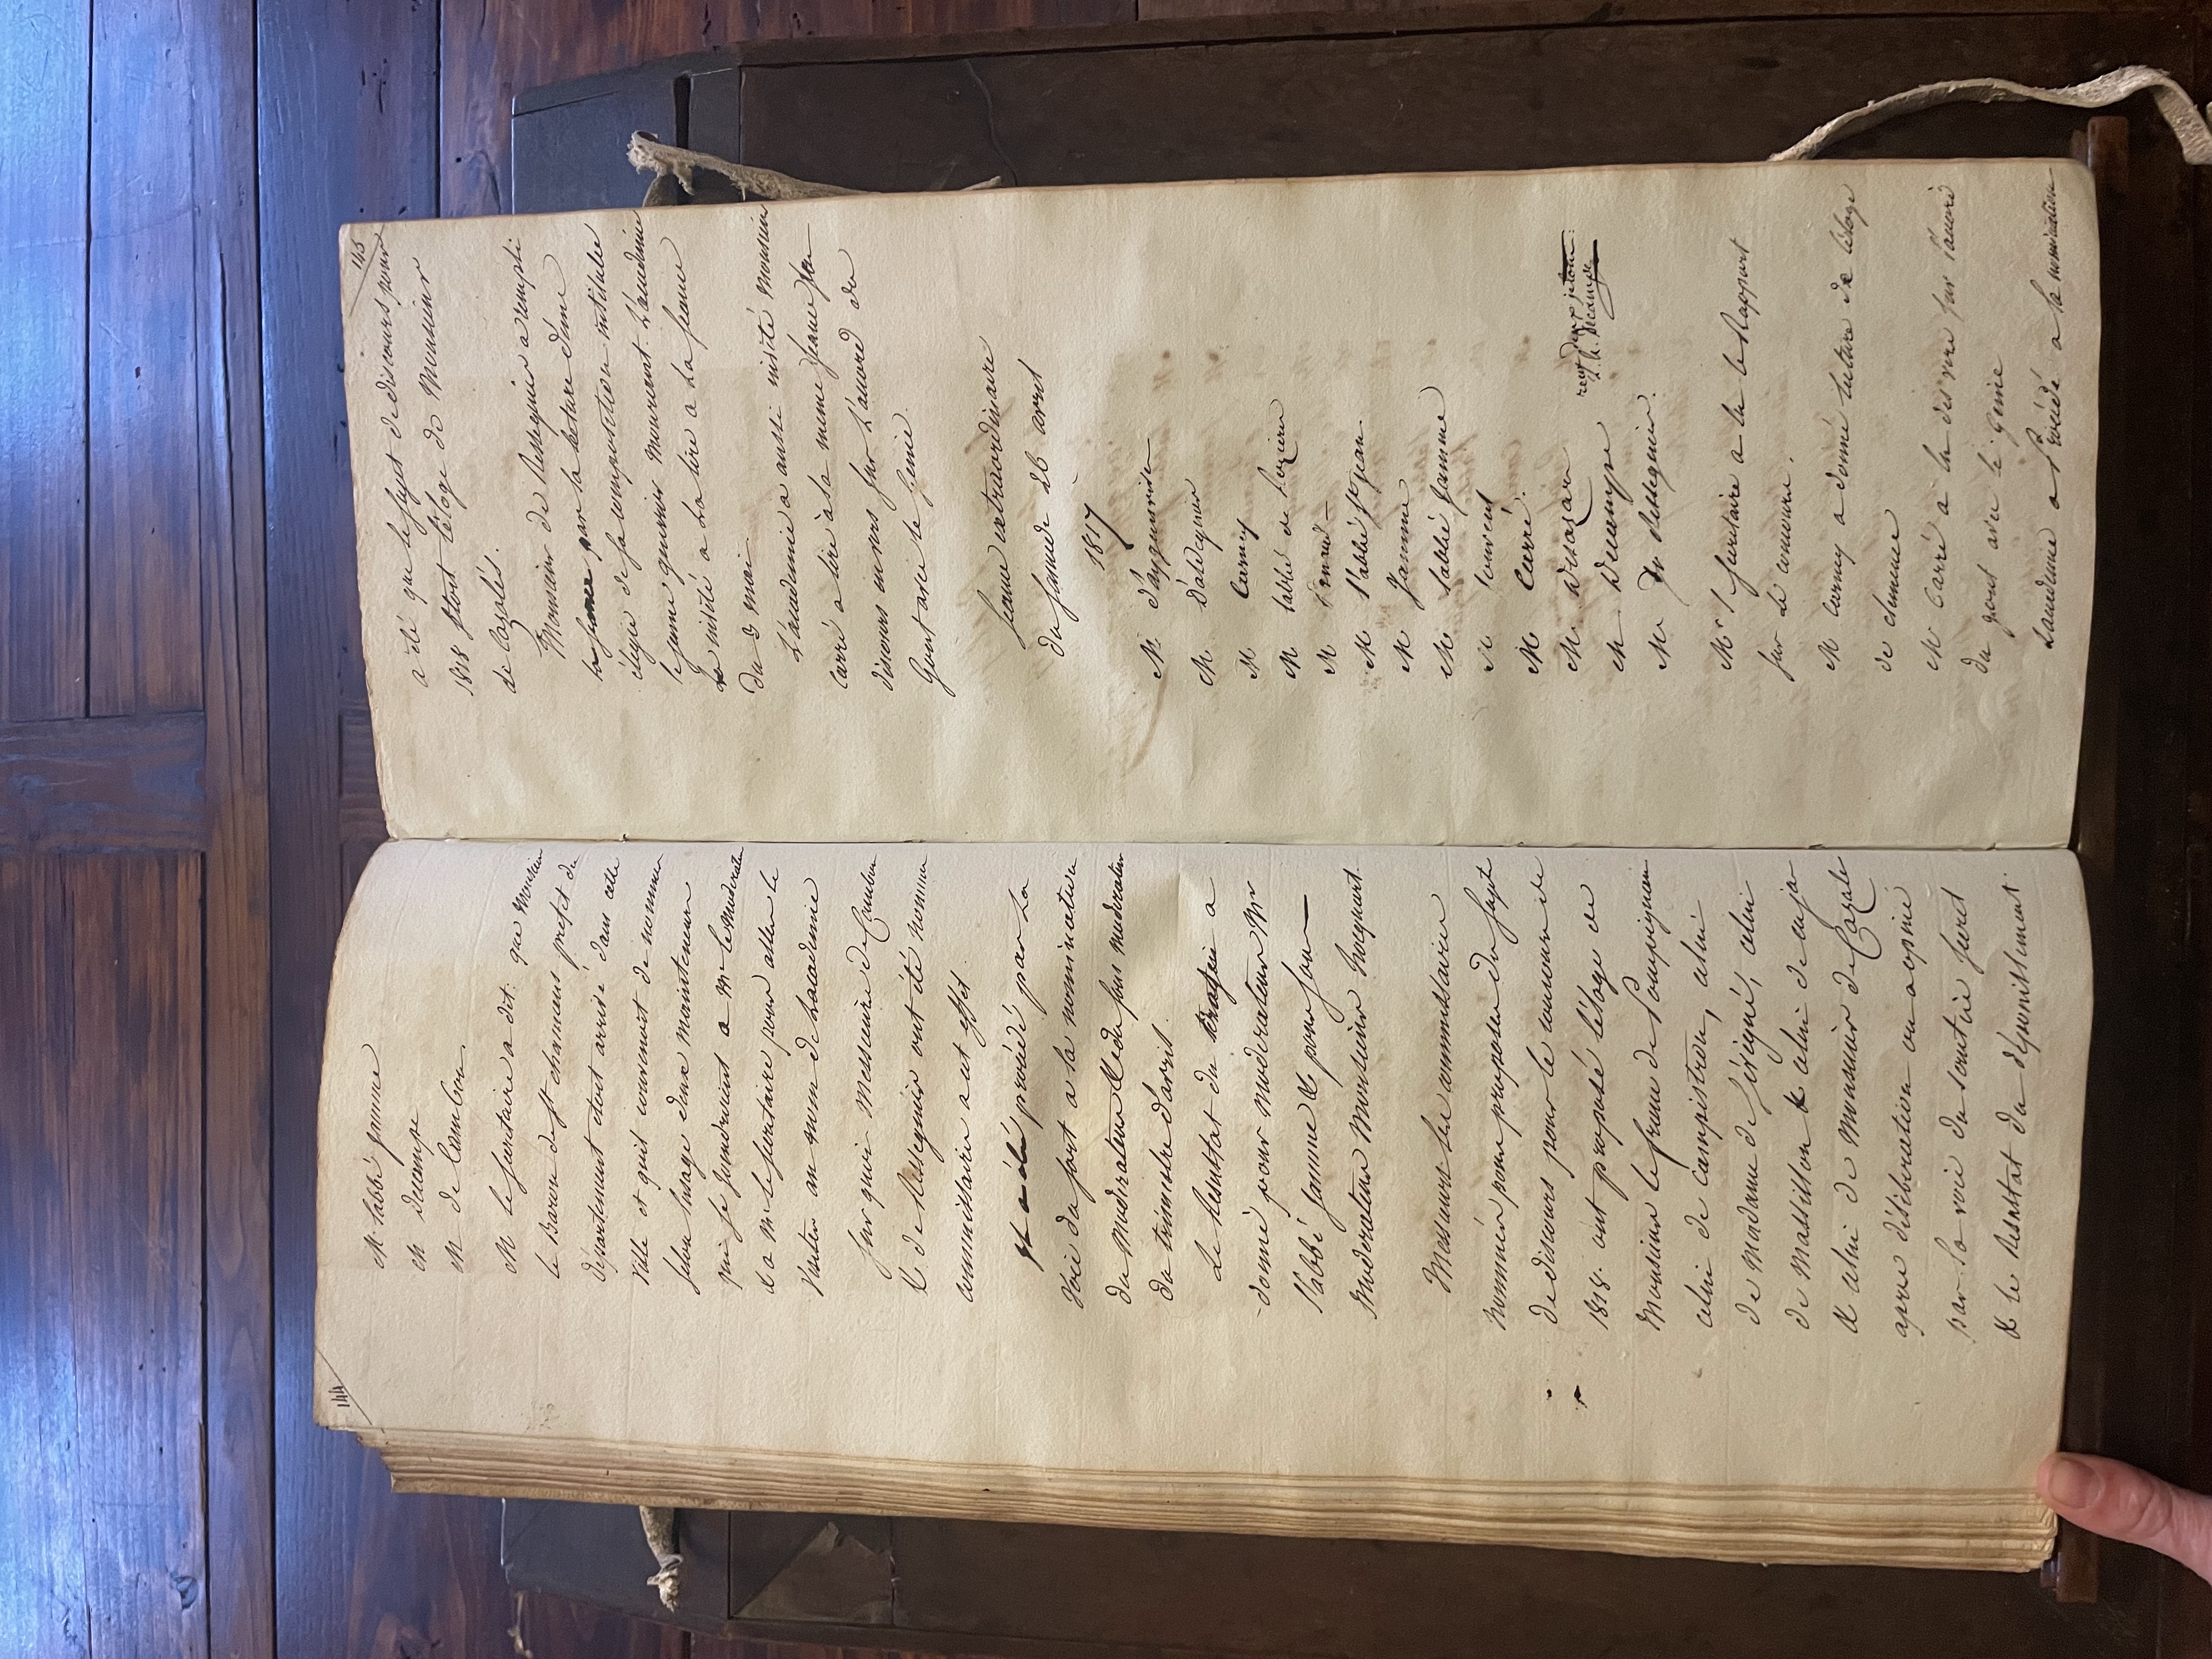 144
M l'abbé jamme
M decampe
M de Cambon.
M le secretaire a dit. que Monsieur
le Baron de st chamans prefet du
département etant arrivé dans cette
ville et quil convenoit de nommer
selon lusage deux mainteneurs
qui se joindroient a Mr le Moderateur
et a Mr le secretaire pour aller le
visiter au nom de Lacademie
sur quoi Messieurs de Cambon
& de Resseguier ont été nommes
commissaires a cet effet.
Il a été procédé par la
voie du sort a la nomination
du moderateur & du sous moderateur
du trimestre d'avril.
Le Resultat du a
donné pour moderateur Mr
l'abbé jamme & pour sous
moderateur Monsieur
Messieurs les commissaires
nommés pour proposer du sujet
de discours pour le concours de
1818. ont proposé léloge de
Monsieur le franc de Pompignan
celui de campistron, celui
de Madame de sévigné, celui
de Massillon & celui de cuja
& celui de Monsieur de Cazale
apres déliberation on a opiné
par la voie du scrutin secret
& le Resultat du dépouillement
145
a été que le sujet de discours pour
1818 seroit léloge de Monsieur
de Cazalès.
Monsieur de Resseguier a rempli
la seance par la lecture d'une
élégie de sa composition intitulée
le jeune grec mourant. L'académie
la invité a La lire a La seance
du 3 mai.
L'academie a aussi invité Monsieur
Carré a lire à la meme seance son
discours en vers sur L'accord du
Gout avec le Genie.
Seance extraordinaire
du samedi 26 avril
1817
M. d'aguin
M. d'aldeguier
M Carney
M l'abbé de
M
M l'abbé st jean
M Jamme
M l'abbé jamme
M
M Carré.
M desazars
M Decampe
M De Resseguier.
Mr l secretaire a lu le Rapport
sur le concours.
M carney a donné lecture de leloge
de clemence
M Carré a lu des vers sur l'accord
du gout avec le genie
Lacademie a Procédé a la nomination